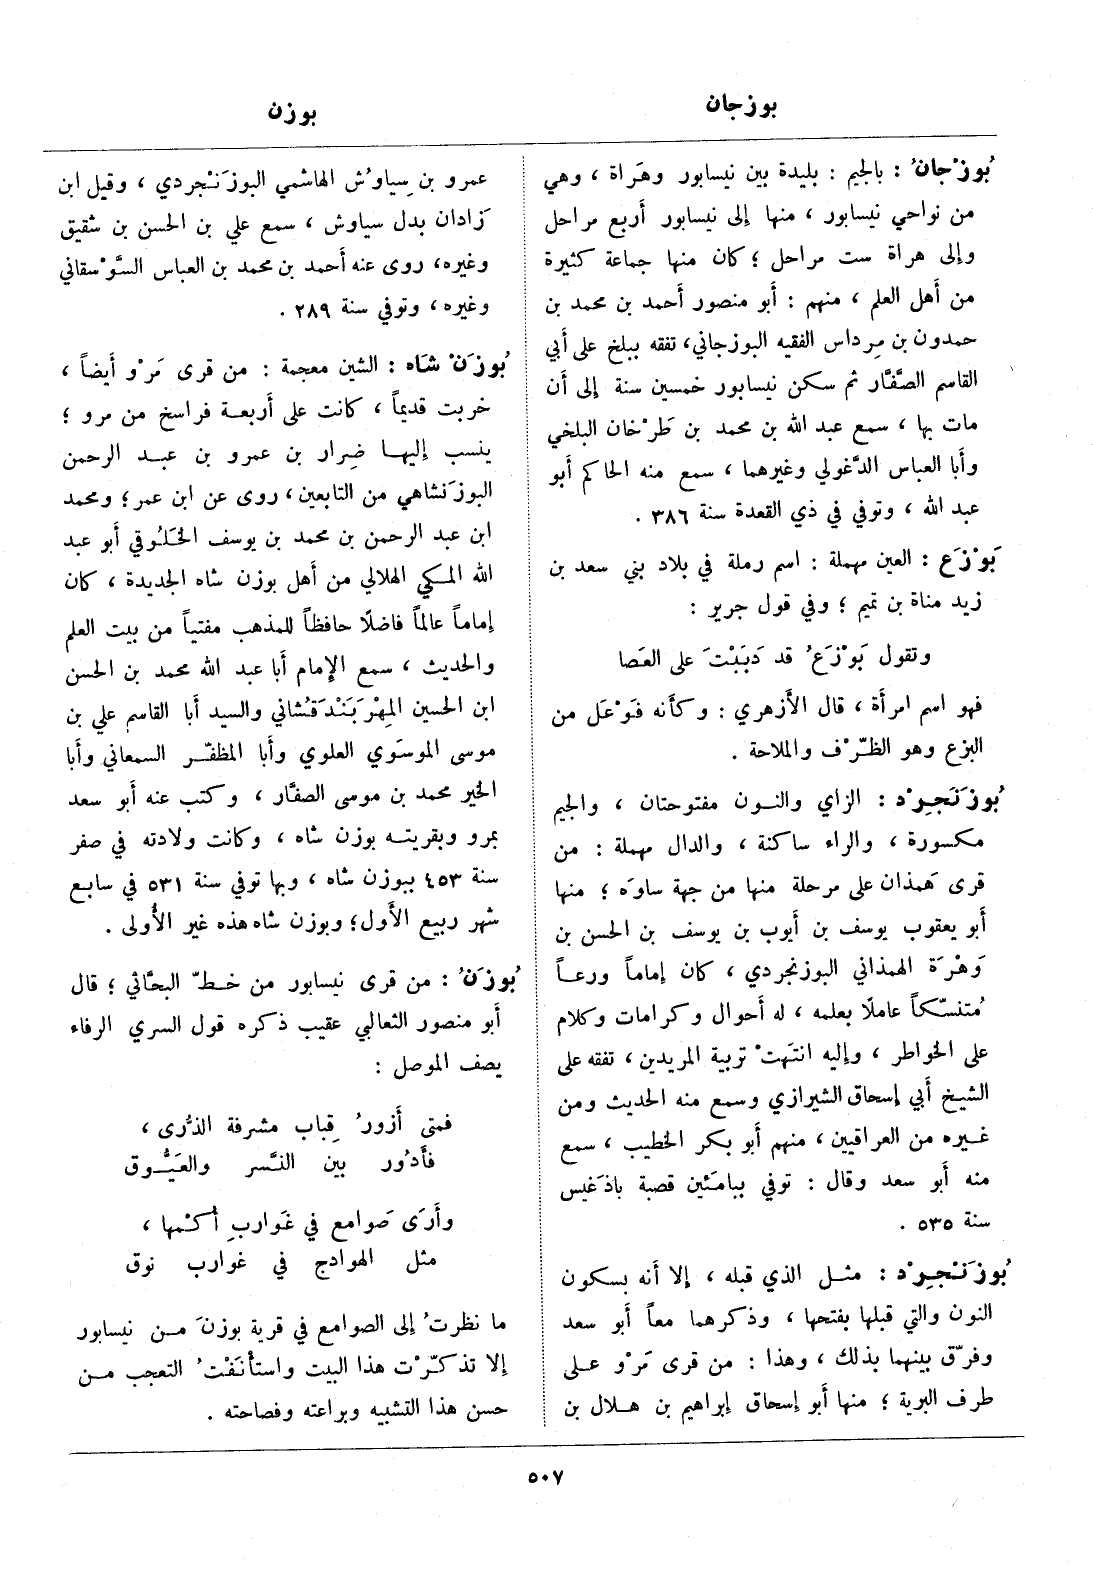 بوزجان
بوزن
بُوزْجانُ : بالجيم : بليدة بين نيسابور وهَراة ، وهي
من نواحي نيسابور ، منها إلى نيسابور أربع مراحل
وإلى هراة ست مراحل ؛ كان منها جماعة كثيرة
من أهل العلم ، منهم : أبو منصور أحمد بن محمد بن
حمدون بن مِرداس الفقيه البوزجاني، تفقه ببلخ على أبي
القاسم الصَّفَّار ثم سكن نيسابور خمسين سنة إلى أن
مات بها ، سمع عبد الله بن محمد بن طَرْخان البلخي
وأبا العباس الدَّغولي وغيرهما ، سمع منه الحاكم أبو
عبد الله ، وتوفي في ذي القعدة سنة ٣٨٦ .
بَوْزَع : العين مهملة : اسم رملة في بلاد بني سعد بن
زيد مناة بن تميم ؛ وفي قول جرير :
وتقول بَوْزَعُ قد دَبَبْتَ على العَصا
فهو اسم امرأة ، قال الأزهري : وكأنه فَوْعَل من
البزع وهو الظَّرْف والملاحة .
بُوزَنَجِرْد : الزاي والنون مفتوحتان ، والجيم
مكسورة ، والراء ساكنة ، والدال مهملة : من
قرى هَمذان على مرحلة منها من جهة ساوَه ؛ منها
أبو يعقوب يوسف بن أيوب بن يوسف بن الحسن بن
وَهْرَة الهمذاني البوزنجردي ، كان إماماً ورعاً
مُتنسّكاً عاملًا بعلمه ، له أحوال وكرامات وكلام
على الخواطر ، وإليه انتَهتْ تربية المريدين ، تفقه على
الشيخ أبي إسحاق الشيرازي وسمع منه الحديث ومن
غيره من العراقيين ، منهم أبو بكر الخطيب ، سمع
منه أبو سعد وقال : توفي ببامَئين قصبة باذَغيس
سنة ٥٣٥ .
بُوزَنْجِرْد : مثل الذي قبله ، إلا أنه بسكون
النون والتي قبلها بفتحها ، وذكرهما معاً أبو سعد
وفرّق بينهما بذلك ، وهذا : من قرى مَرْو على
طرف البرية ؛ منها أبو إسحاق إبراهيم بن هلال بن
عمرو بن سِياوُش الهاشمي البوزَنْجردي ، وقيل ابن
زادان بدل سياوش ، سمع علي بن الحسن بن شقيق
وغيره، روى عنه أحمد بن محمد بن العباس السَّوْسقاني
وغيره ، وتوفي سنة ٢٨٩ .
بُوزَنْ شاه : الشين معجمة : من قرى مَرْو أيضاً ،
خربت قديماً ، كانت على أربعة فراسخ من مرو ؛
ينسب إليها ضِرار بن عمرو بن عبد الرحمن
البوزَنشاهي من التابعين ، روى عن ابن عمر ؛ ومحمد
ابن عبد الرحمن بن محمد بن يوسف الخَلُوقي أبو عبد
الله المكي الهلالي من أهل بوزن شاه الجديدة ، كان
إماماً عالماً فاضلًا حافظاً للمذهب مفتياً من بيت العلم
والحديث ، سمع الإمام أبا عبد الله محمد بن الحسن
ابن الحسين المِهْرَبَنْدَقْشائي والسيد أبا القاسم علي بن
موسى الموسَوي العلوي وأبا المظفّر السمعاني وأبا
الخير محمد بن موسى الصفّار ، وكتب عنه أبو سعد
بمرو وبقريته بوزن شاه ، وكانت ولادته في صفر
سنة ٤٥٣ ببوزن شاه ، وبها توفي سنة ٥٣١ في سابع
شهر ربيع الأول؛ وبوزن شاه هذه غير الأولى .
بُوزَنُ : من قرى نيسابور من خطّ البحّاثي ؛ قال
أبو منصور الثعالبي عقيب ذكره قول السري الرفاء
يصف الموصل :
فمتى أزورُ قِباب مشرفة الذُرى ،
فأدُور بين النَّسر والعَيُّوق
وأرَى صَوامع في غَوارِبِ أكْمها ،
مثل الهوادج في غوارب نوق
ما نظرتُ إلى الصوامع في قرية بوزنَ من نيسابور
إلا تذكّرْت هذا البيت واستأنَفْتُ التعجب من
حسن هذا التشبيه وبراعته وفصاحته .
٥٠٧